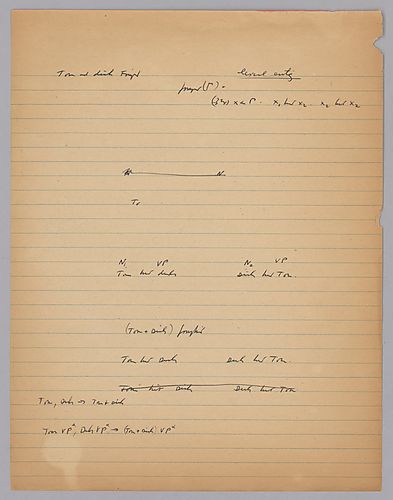 Tom and Dick Fought lexical entry
fought (Γ) =
(∃xy) x ∈ Γ · x₁ hit x₂ · x₂ hit x₁
N
To
N₁ VP N₂ VP
Tom hit Dick Dick hit Tom.
(Tom + Dick) fought
Tom hit Dick Dick hit Tom.
Tom hit Dick Dick hit Tom
Tom, Dick → Tom + Dick
Tom VPˣ, Dick VPˣ → (Tom + Dick) VPˣ